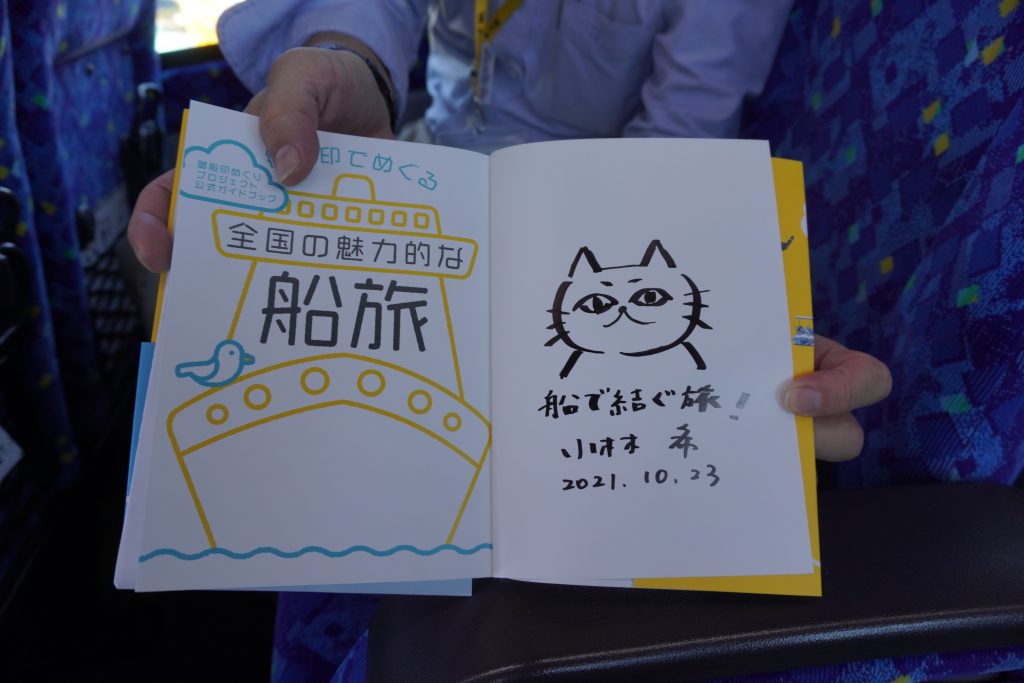 印でめぐる
御船印めぐり
プロジェクト
公式ガイドブック
全国の魅力的な
船旅
船で結ぐ旅!
小林 希
2021.10.23